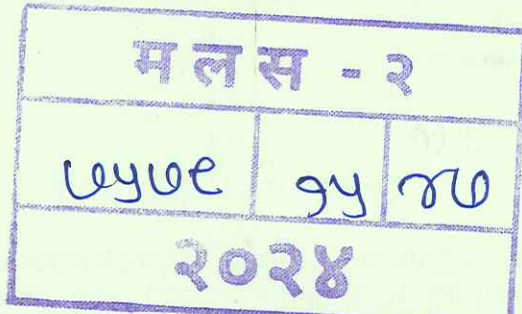 मलस - २
७५७९ १५ ४७
२०२४